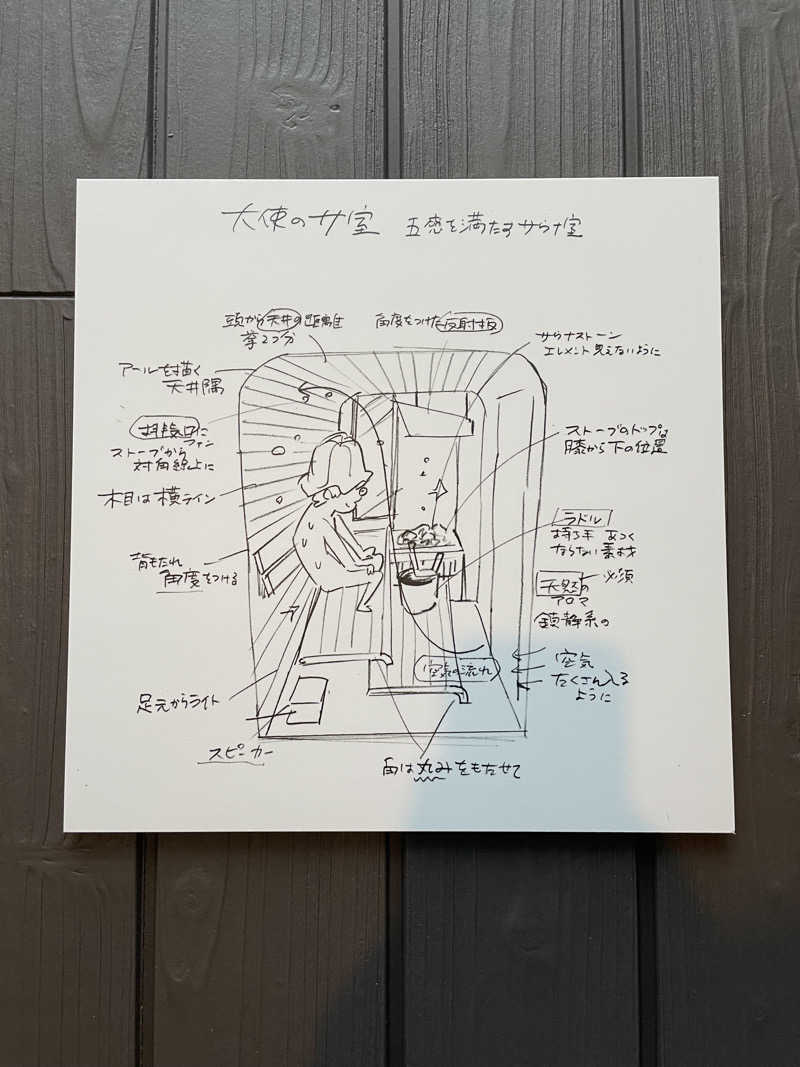 天使のサ室 五感を満たすサウナ室
頭から天井の距離
拳2つ分
角度をつけた反射板
サウナストーン
エレメント見えないように
アールを描く
天井隅
排気口に
ファン
ストーブから
対角線上に
ストーブのトップは
膝から下の位置
木目は横ライン
ラドル
持つ手 あつく
ならない素材
背もたれ
角度をつける
天然の
必須
アロマ
鎮静系の
空気の流れ
空気
たくさん入る
ように
足元からライト
スピーカー
角は丸みをもたせて